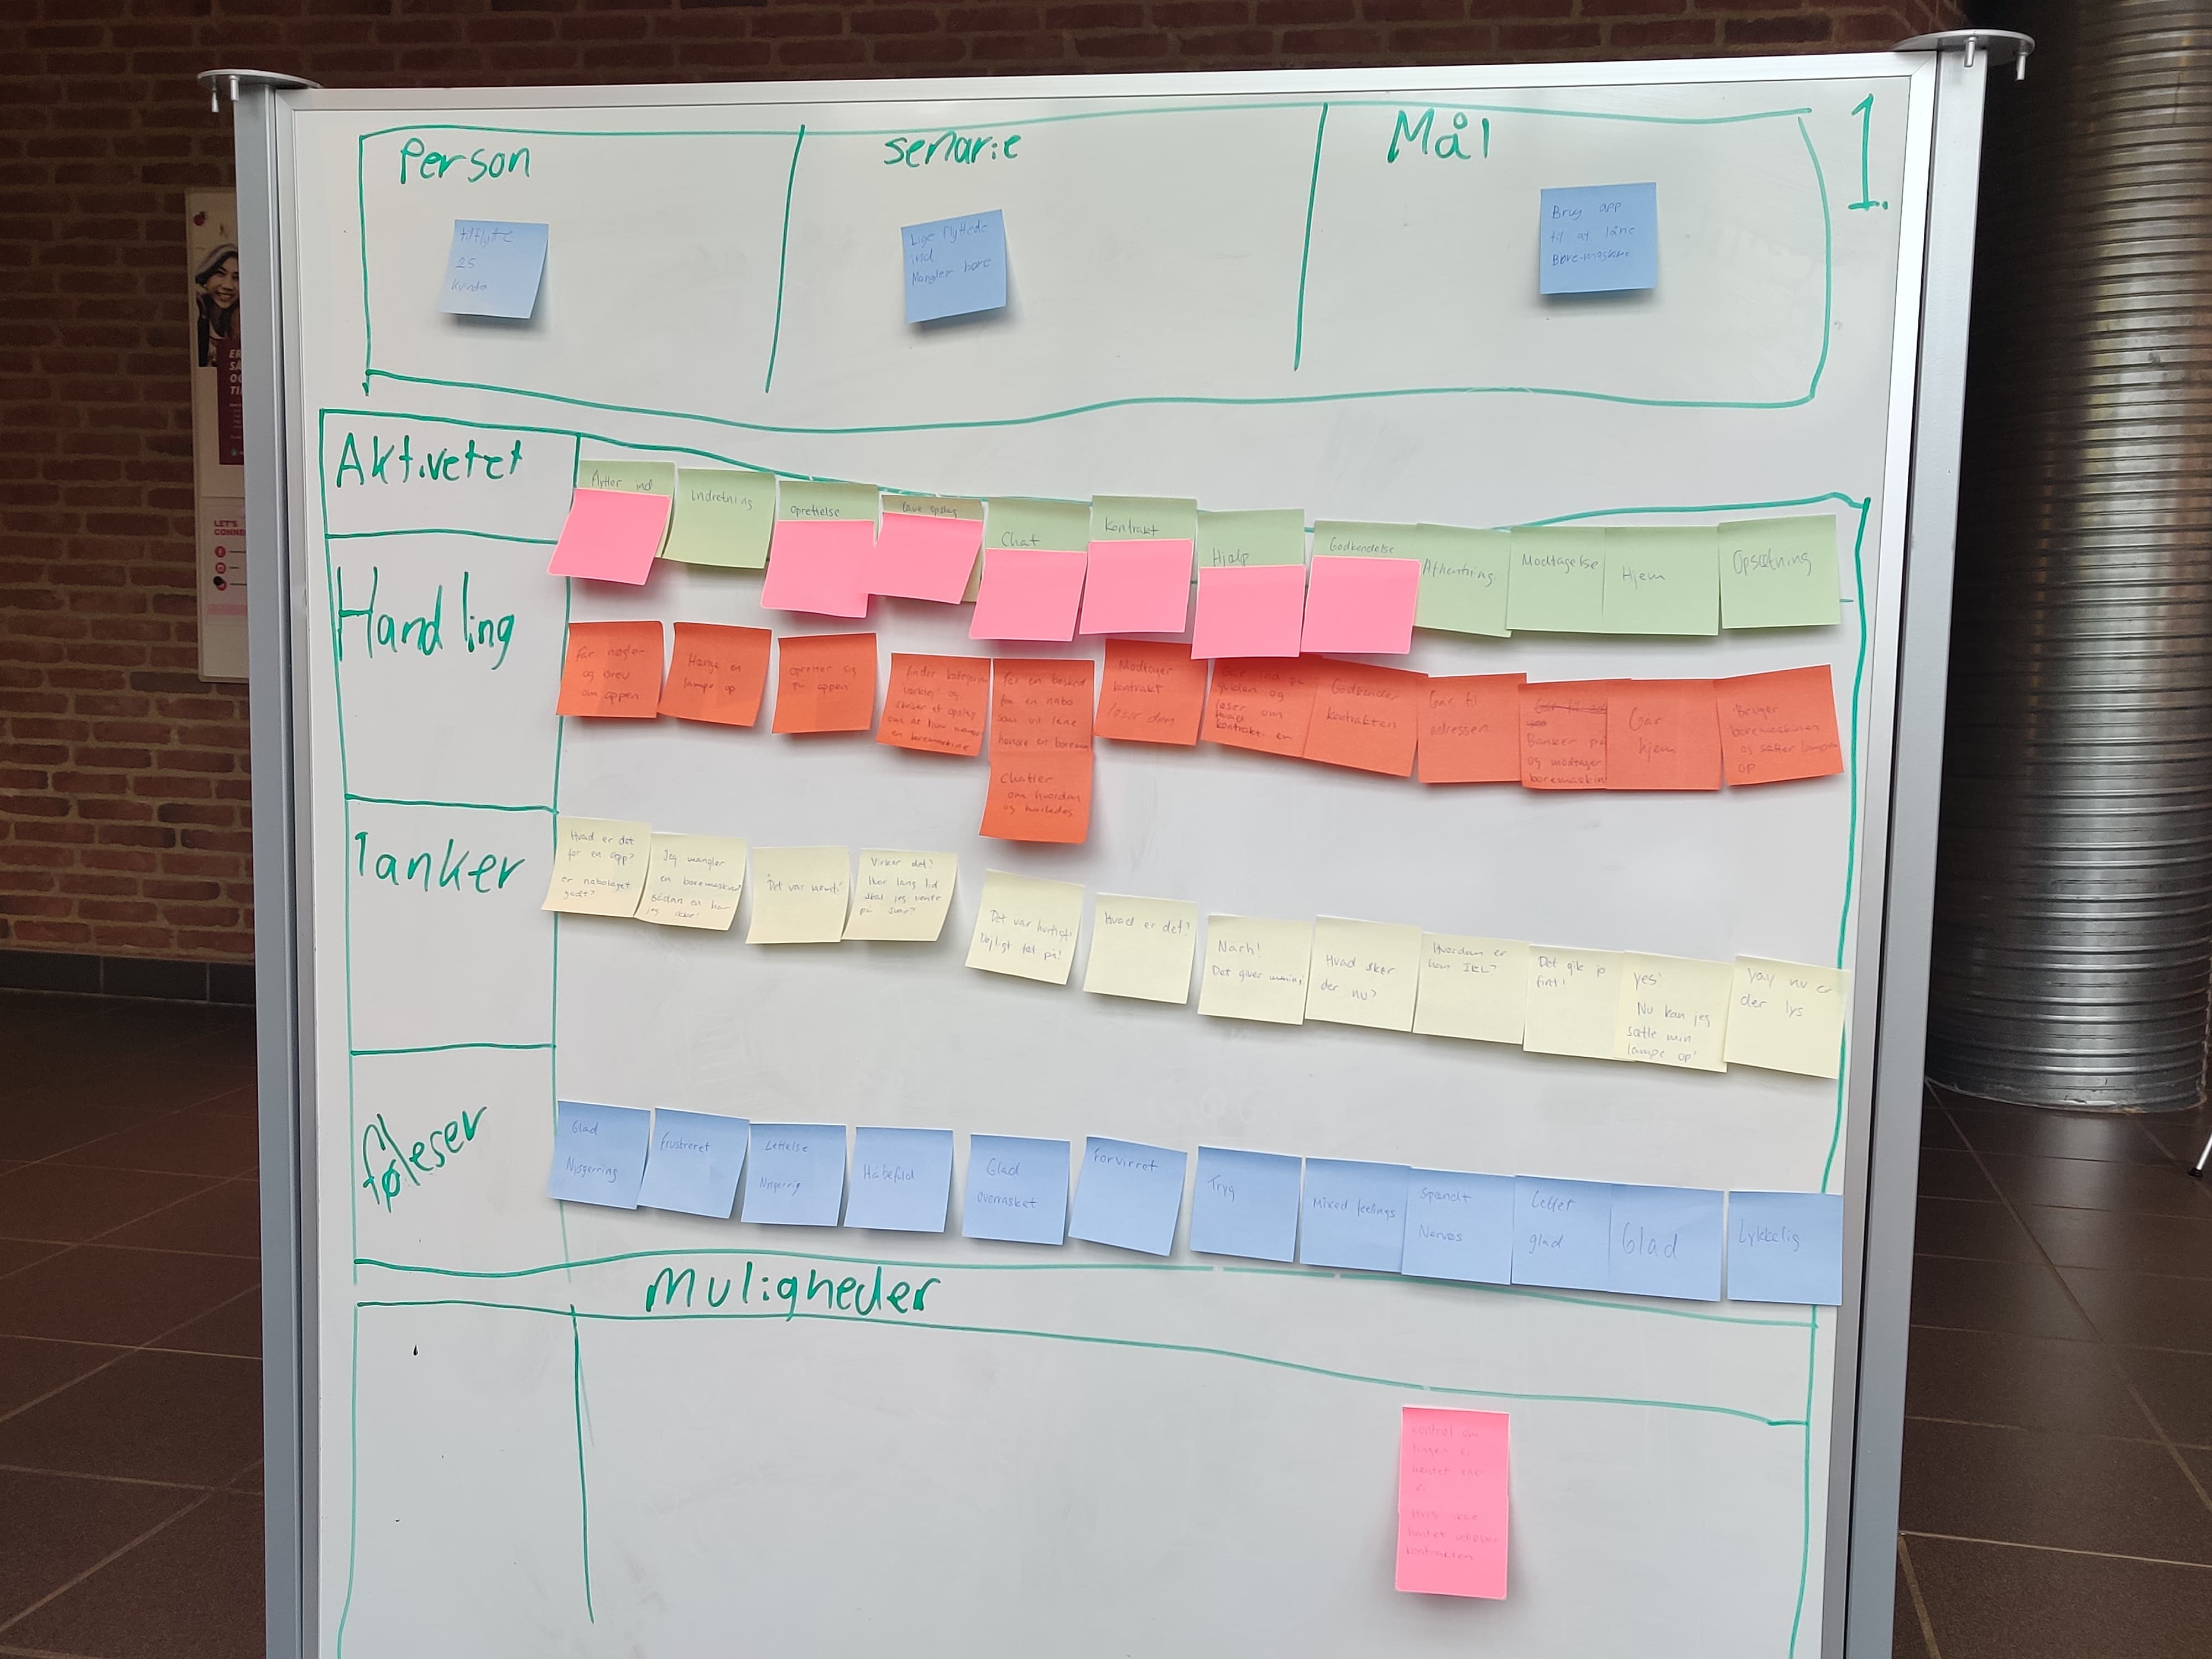 Person
senarie
Mål
1.
tilflytte
25
Kvinde
Lige flyttede
ind
Mangler bore
Brug app
til at låne
Bore-maskine
Aktivetet
Flytter ind
indretning
oprettelse
Lave opslag
Chat
Kontrakt
Hjælp
Godkendelse
Afhentning
Modtagelse
Hjem
Opsætning
Handling
Får nøgler
og brev
om appen
Hænge en
lampe op
opretter sig
på appen
finder kategorien
værktøj og
skriver et opslag
om at hun mangler
en boremaskine
får en besked
fra en nabo
som vil låne
hende en borem
Chatter
om hvordan
og hvorledes
Modtager
kontrakt
læser den
Går ind på
guiden og
læser om
hvad
kontrakt er
Godkender
kontrakten
Går til
adressen
Banker på
og modtager
boremaskin
Går
hjem
Bruger
boremaskinen
og sætter lampen
op
Tanker
Hvad er det
for en app?
er nabolaget
godt?
Jeg mangler
en boremaskine
Sådan en har
jeg ikke!
Det var nemt!
Virker det?
Hvor lang tid
skal jeg vente
på svar?
Det var hurtigt!
Dejligt tal på!
Hvad er det?
Nårh!
Det giver mening!
Hvad sker
der nu?
Hvordan er
han IRL?
Det gik jo
fint!
yes!
Nu kan jeg
sætte min
lampe op!
yay nu er
der lys
føleser
Glad
Nysgerring
frustreret
Lettelse
Nysgerrig
Håbefuld
Glad
overrasket
Forvirret
Tryg
Mixed feelings
Spændt
Nervøs
Lettet
glad
Glad
Lykkelig
Muligheder
Kontrol om
tingen er
hentet eller
ej
Hvis ikke
hentet ophæver
kontrakten